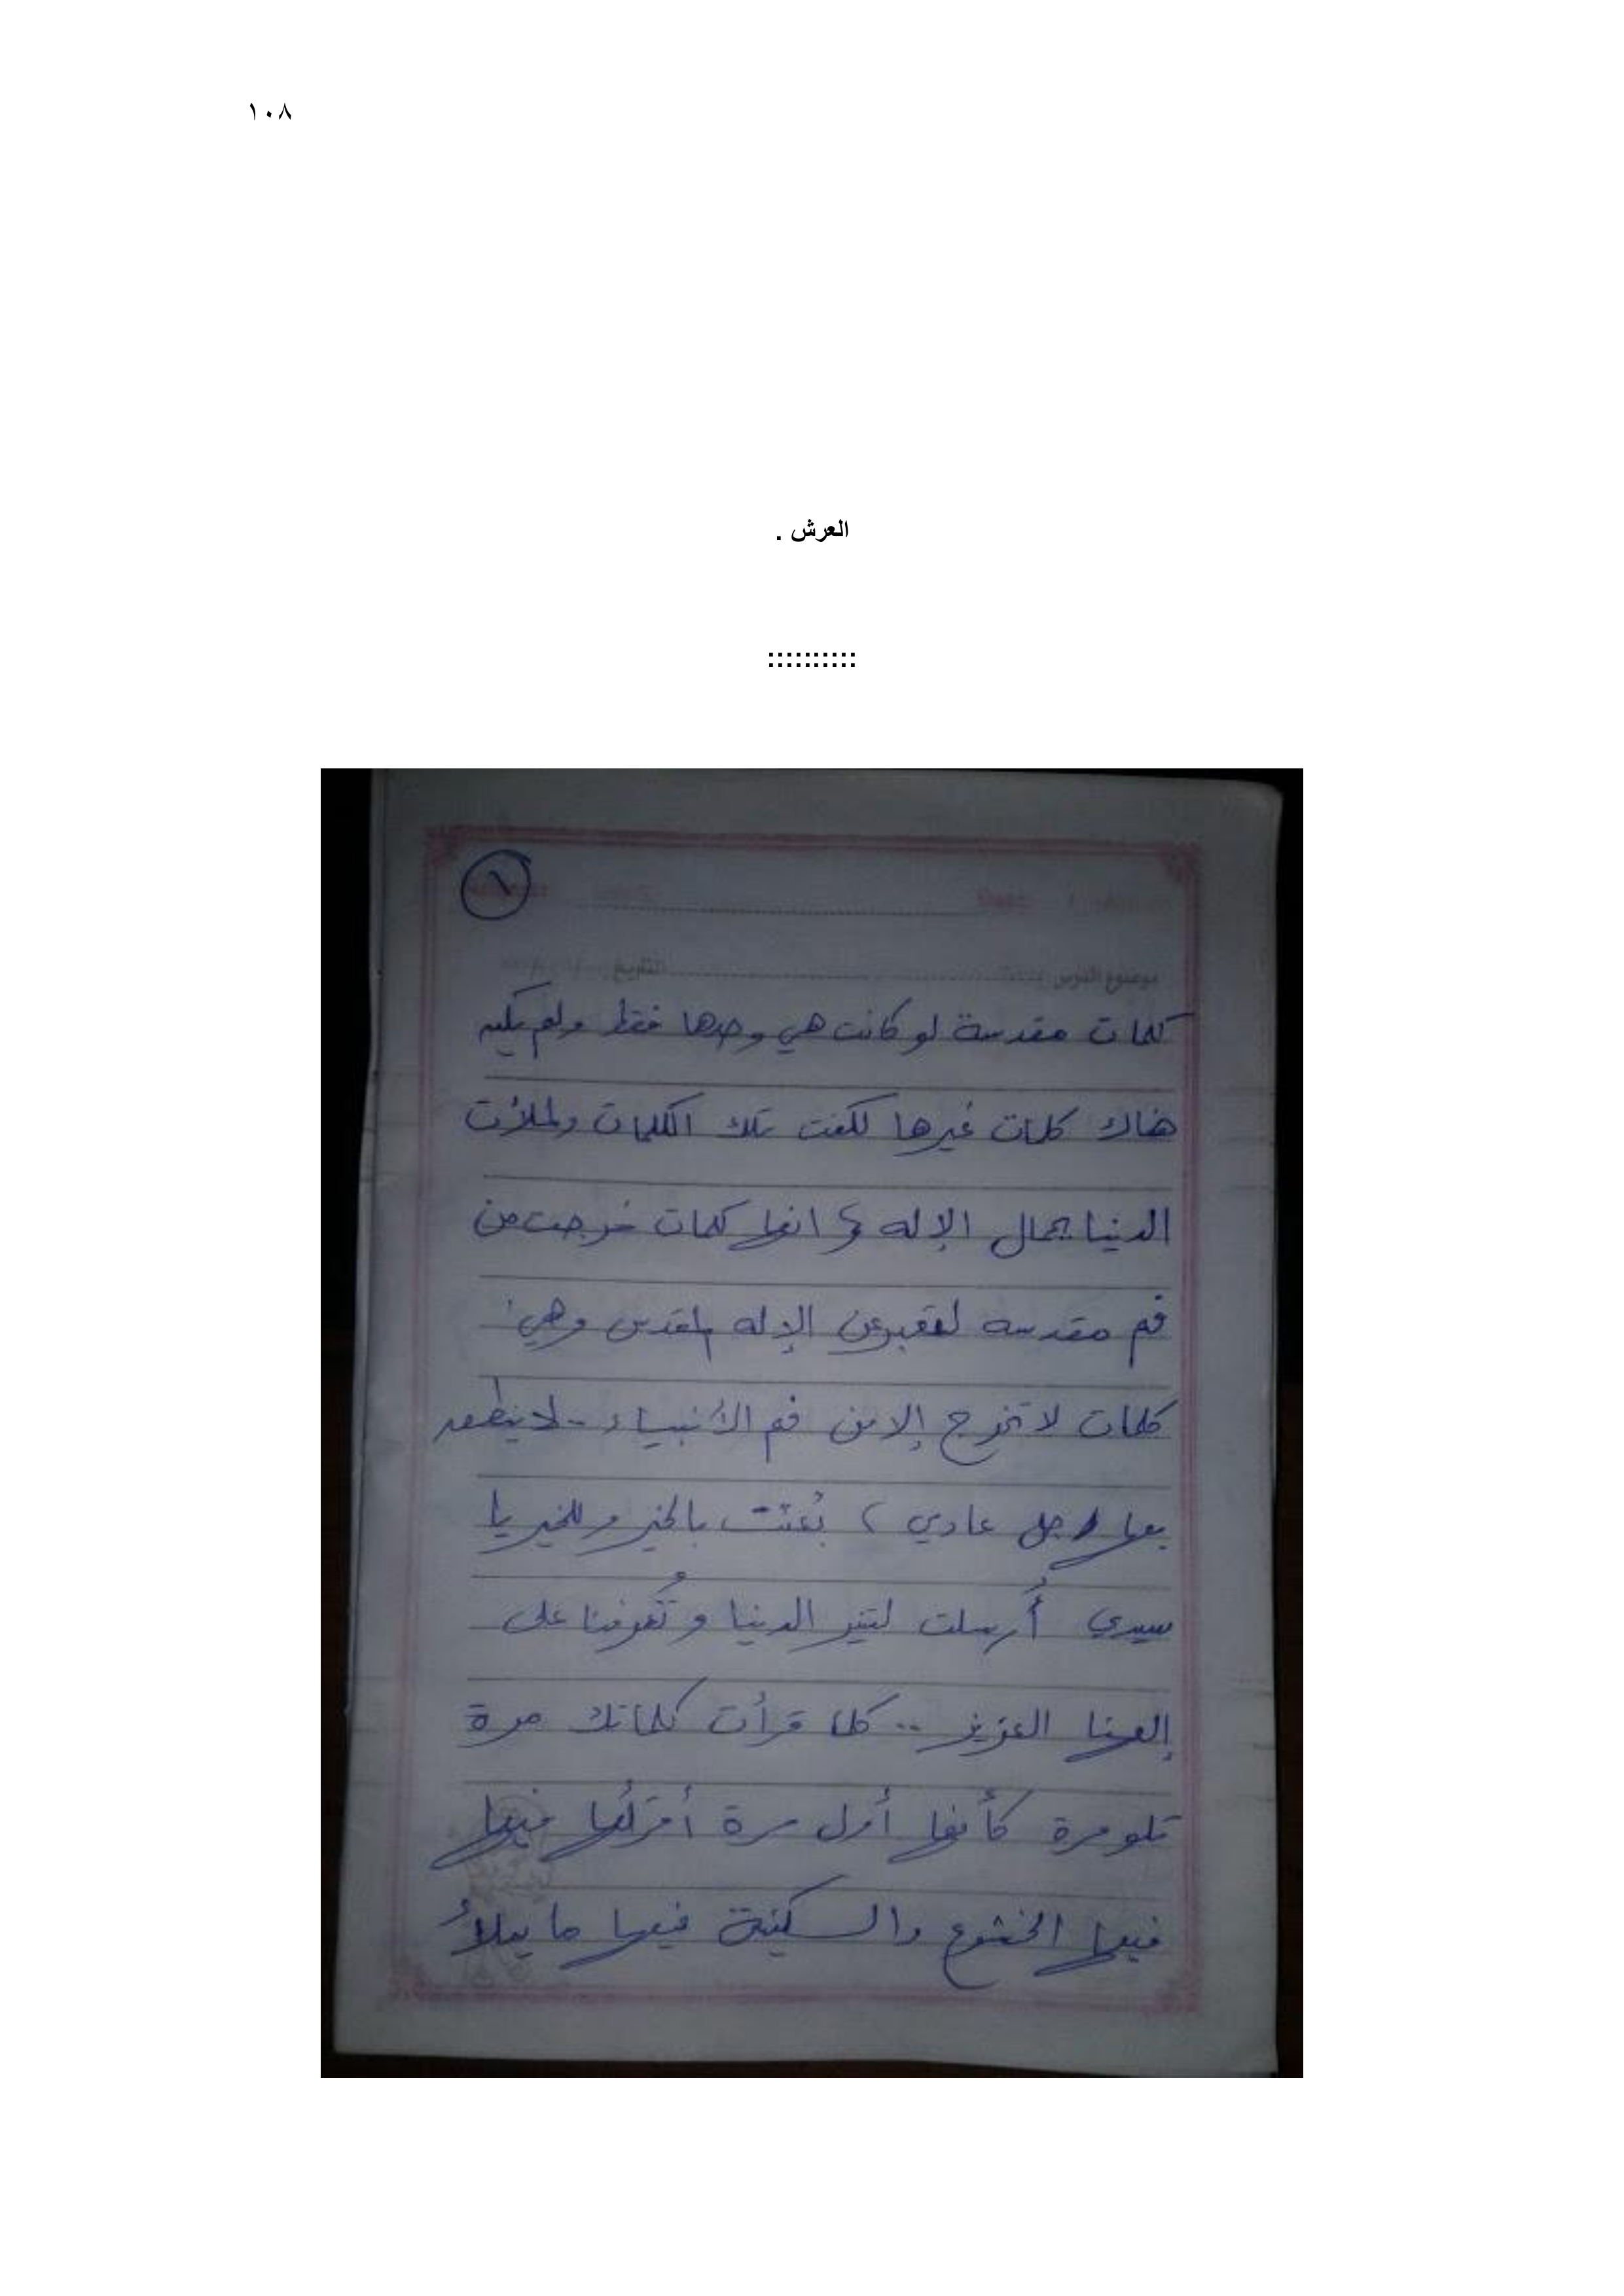 ١٠٨
العرش .
::::::::::
١
موضوع الدرس التاريخ
كلمات مقدسة لو كانت هي وحدها فقط ولم يكن
هناك كلمات غيرها لكفت تلك الكلمات ولملأت
الدنيا بجمال الإله ؟ انها كلمات خرجت من
فم مقدسه الإله المقدس وهي
كلمات لا تخرج إلا من فم الأنبياء .. لا ينطق
بها رجل عادي ، بُعثت بالخير وللخير يا
سيدي أُرسلت لتنير الدنيا وتُعرفنا على
إلهنا العزيز .. كلما قرأت كلماتك مرة
تلو مرة كأنها أول مرة أقرأها فيها
فيها الخشوع والسكينة فيها ما يملأ